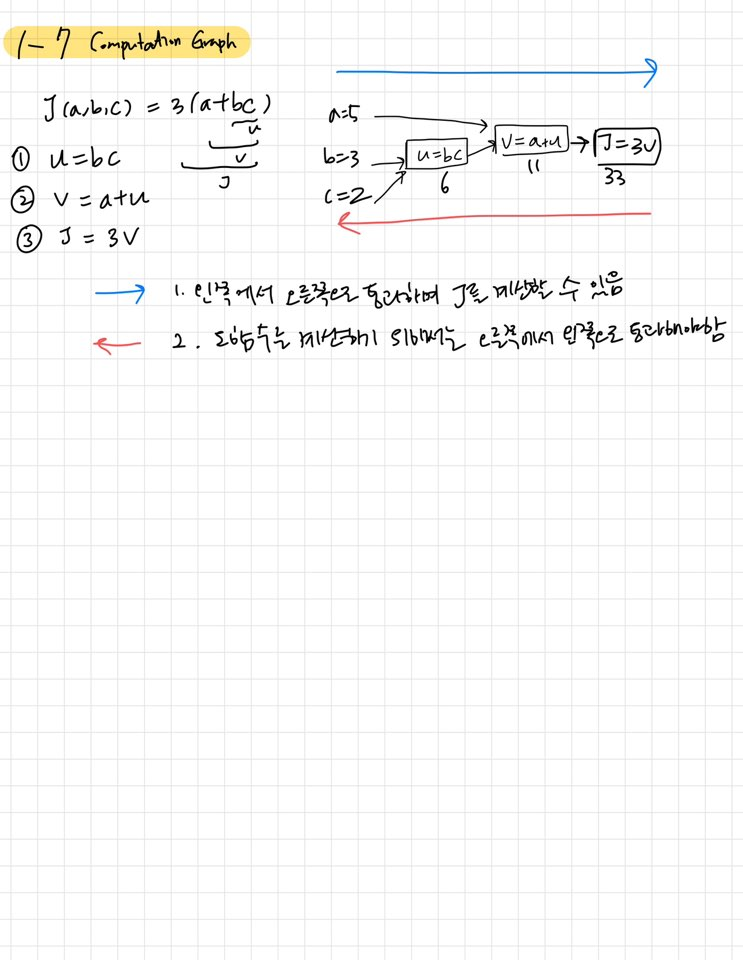 1-7 Computation Graph
J(a,b,c) = 3(a+bc)
u
v
J
① u=bc
② v = a+u
③ J = 3v
a=5
b=3
c=2
u=bc
6
v=a+u
11
J=3v
33
→ 1. 왼쪽에서 오른쪽으로 통과하며 J를 계산할 수 있음
← 2. 도함수는 계산하기 위해서는 오른쪽에서 왼쪽으로 통과해야함